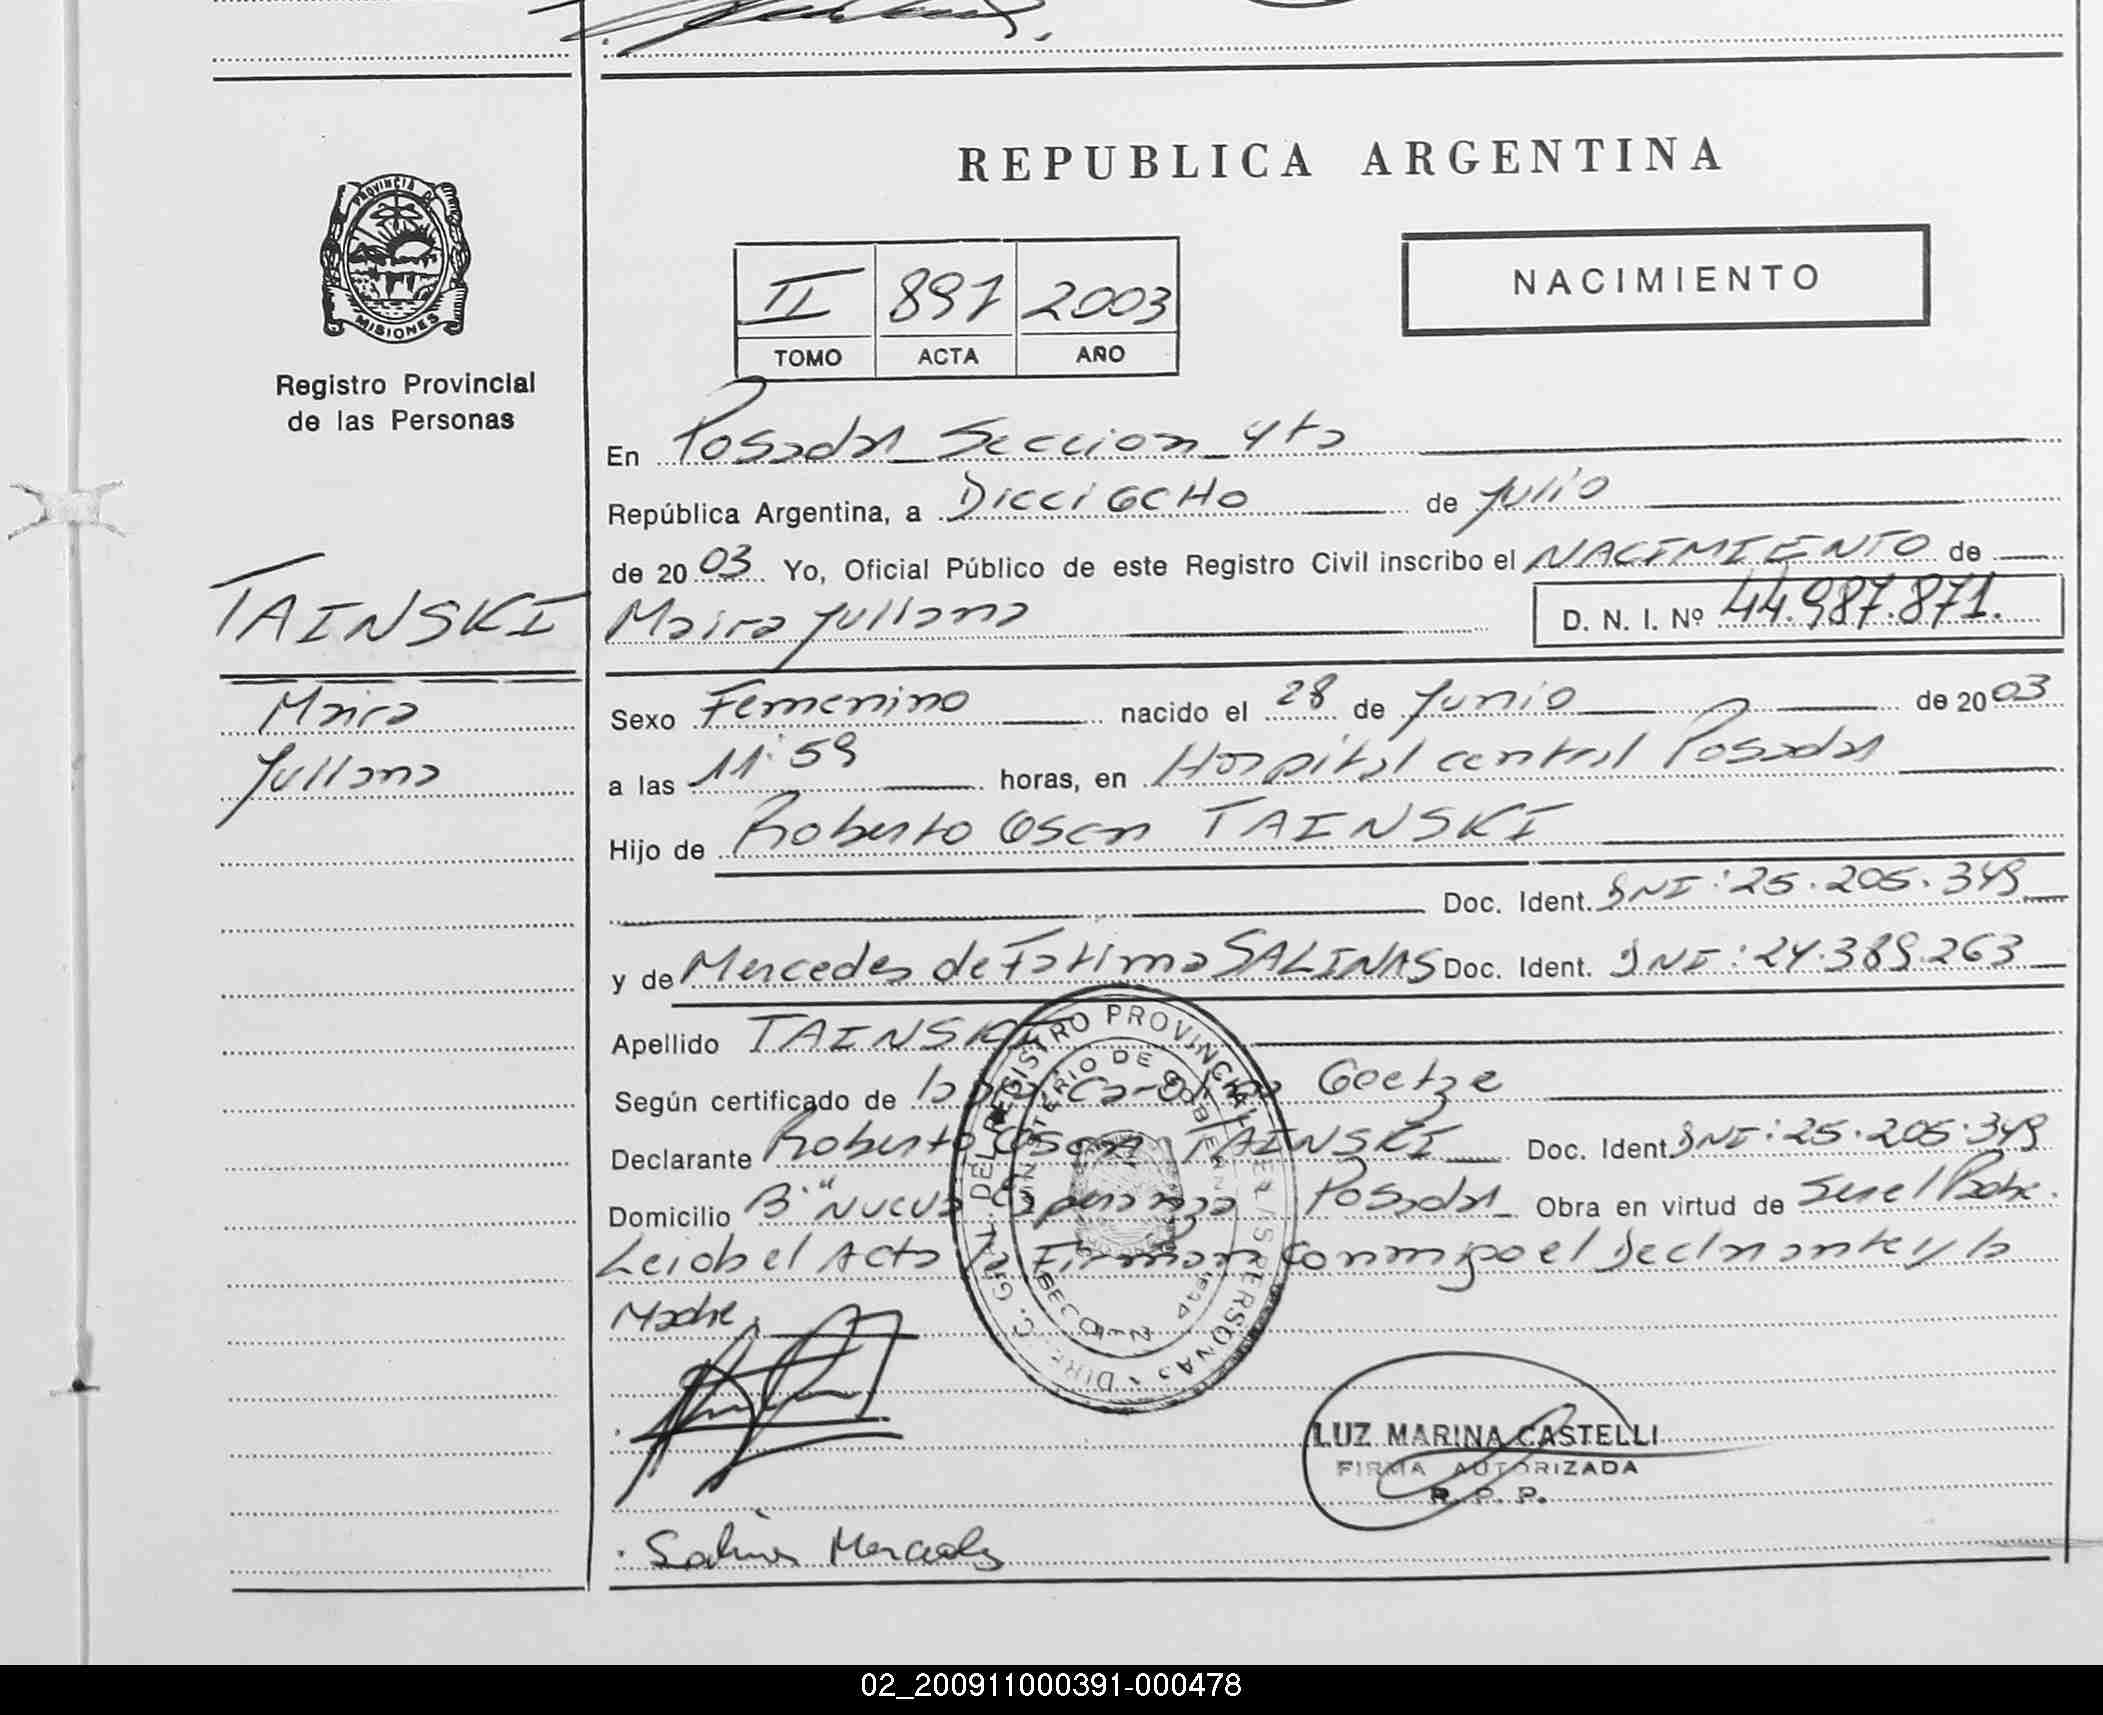 REPUBLICA ARGENTINA
PROVINCIA DE
MISIONES
Registro Provincial
de las Personas
NACIMIENTO
II 891 2003
TOMO ACTA AÑO
En Posadas Seccion 4ta
República Argentina, a DiecciOCHO de Julio
de 2003 Yo, Oficial Público de este Registro Civil inscribo el NACIMIENTO de
TAINSKI
Maira Juliana
Maira Juliana D. N. I. Nº 44.987.871.
Sexo Femenino nacido el 28 de Junio de 2003
a las 11:59 horas, en Hospital central Posadas
Hijo de Roberto Oscar TAINSKI
Doc. Ident. DNI: 25.205.349
y de Mercedes de Fatima SALINAS Doc. Ident. DNI: 24.389.263
Apellido TAINSKI
Según certificado de Goetze
Declarante Roberto Oscar TAINSKI Doc. Ident. DNI: 25.205.349
Domicilio B° "Nueva Esperanza Posadas Obra en virtud de Ser el Padre.
Leida el Acta la Firman conmigo el Declarante y la
Madre.
DIREC. GRAL. DEL REGISTRO PROVINCIAL DE LAS PERSONAS
MINISTERIO DE GOBIERNO
LUZ MARINA CASTELLI
FIRMA AUTORIZADA
R. P. P.
Salinas Mercedes
02_200911000391-000478